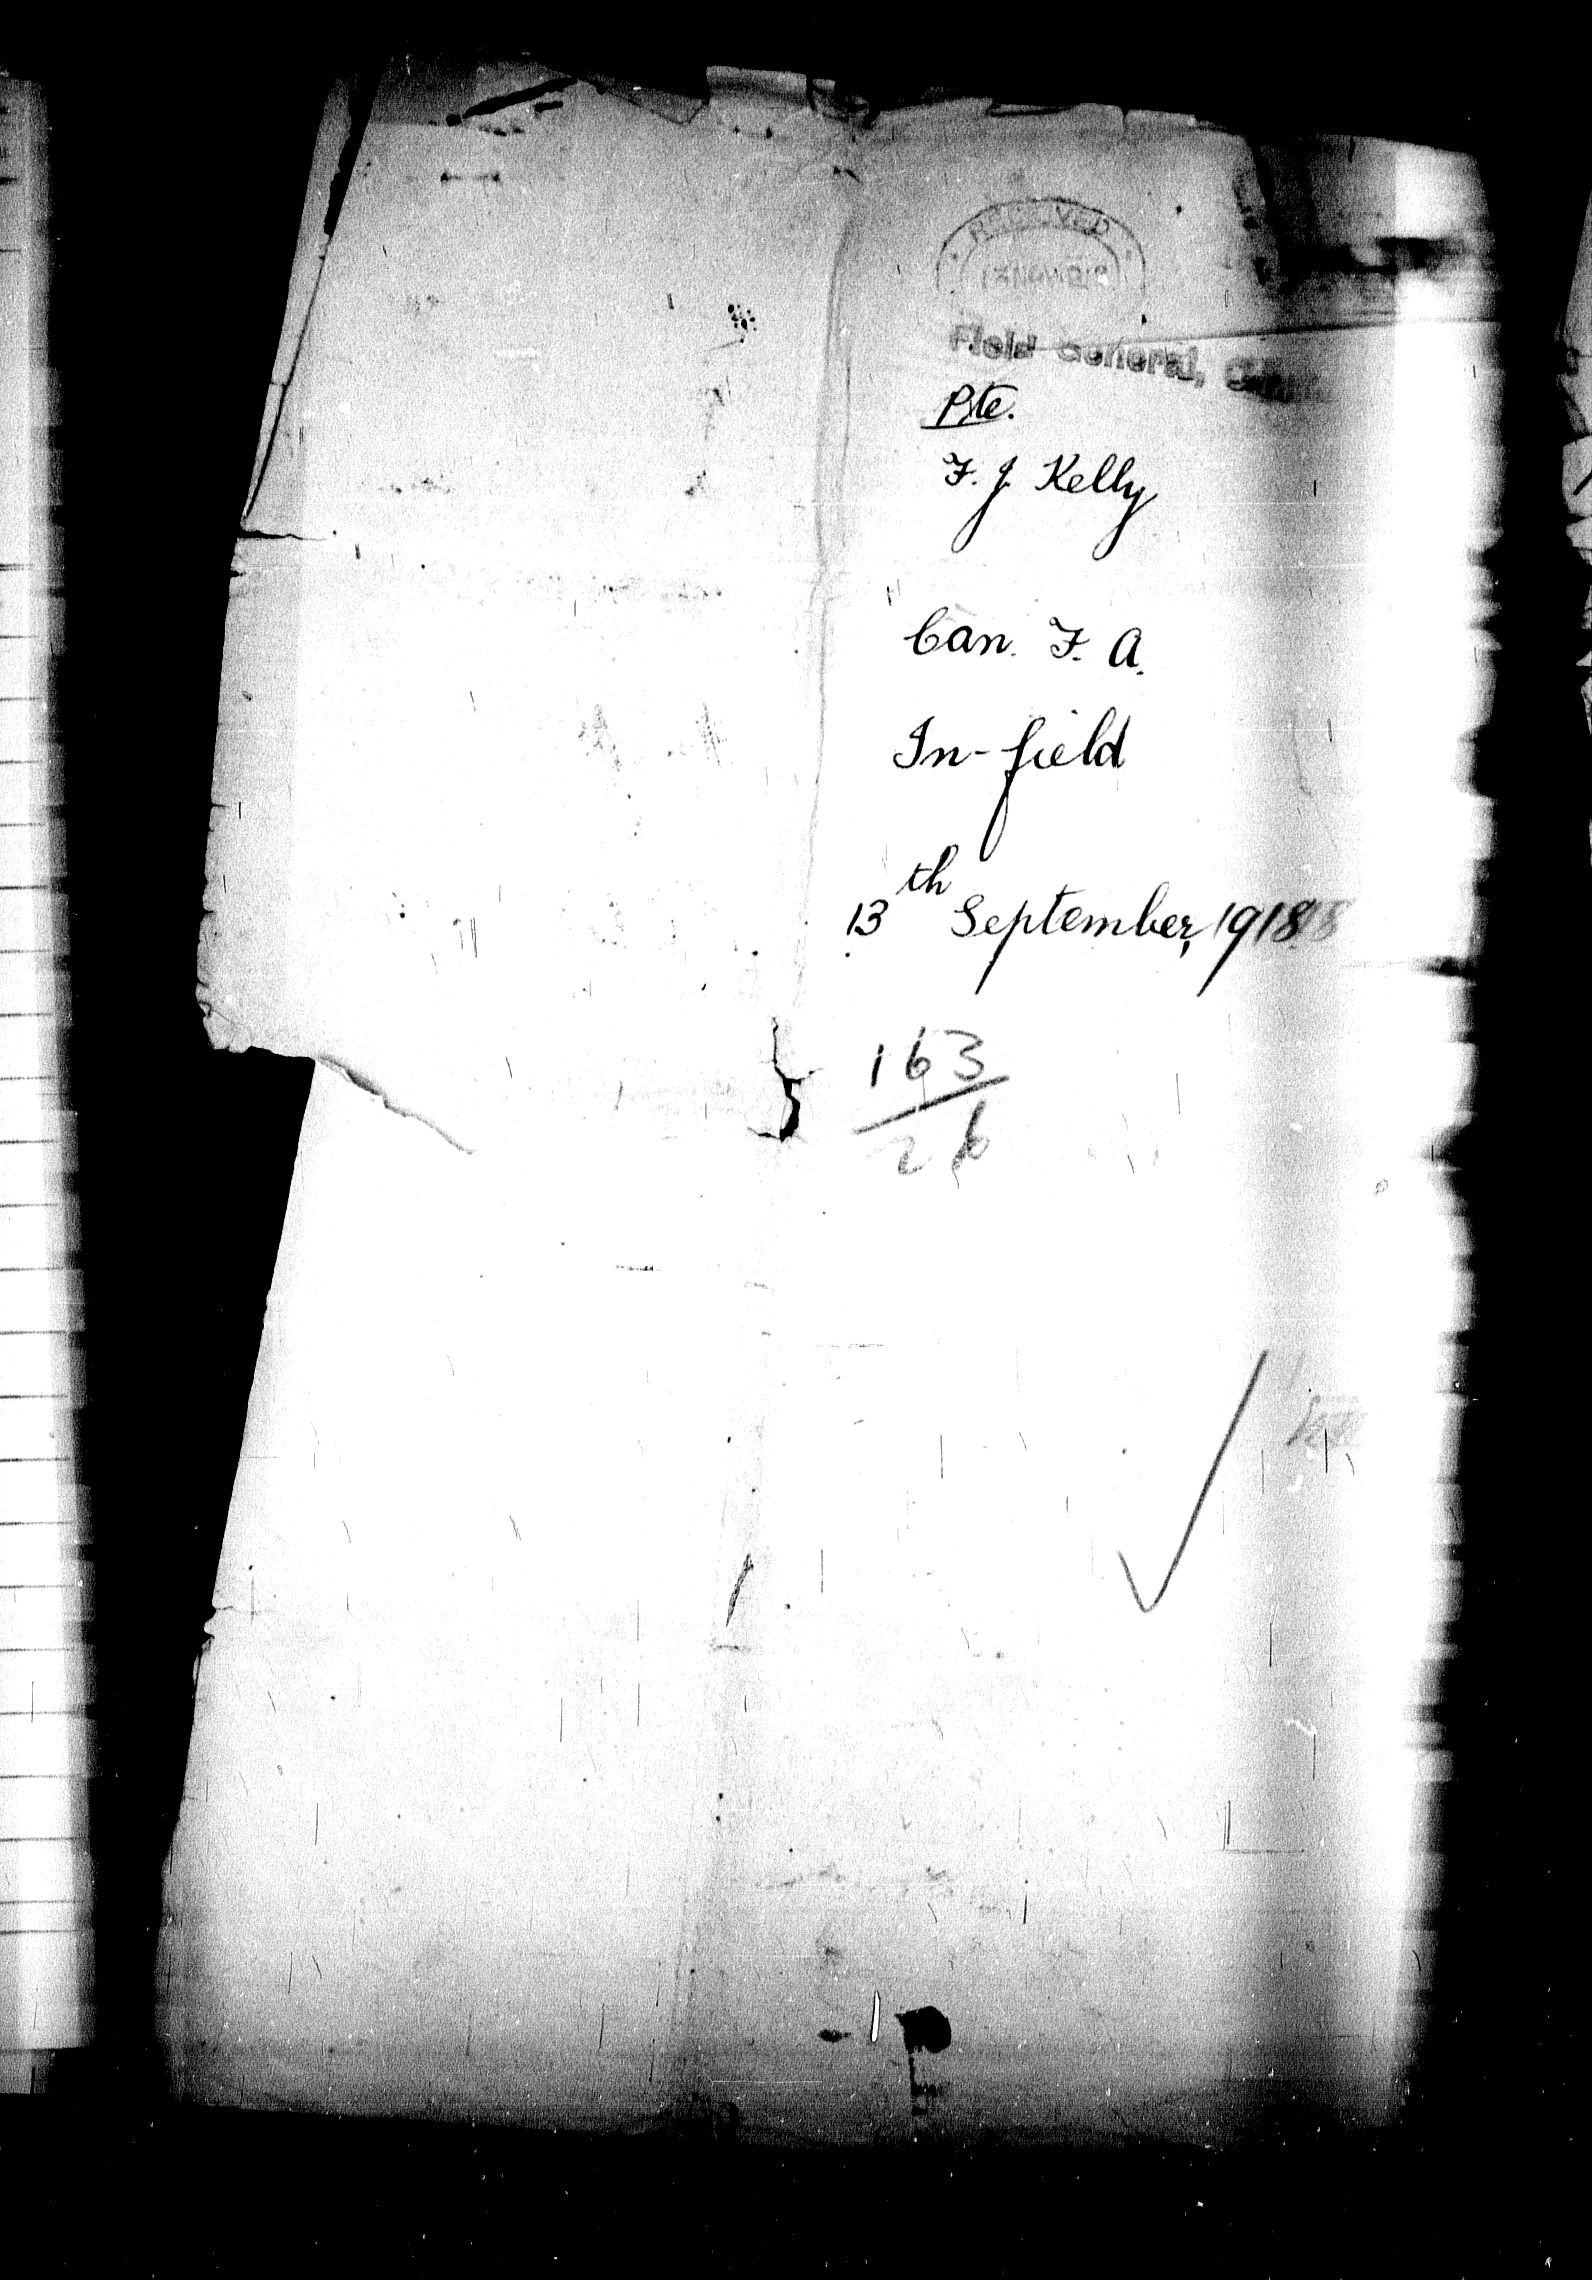 RECEIVED
Field General,
Pte.
F. J. Kelly
Can. F. A.
In-field
13th September, 1918
163
26